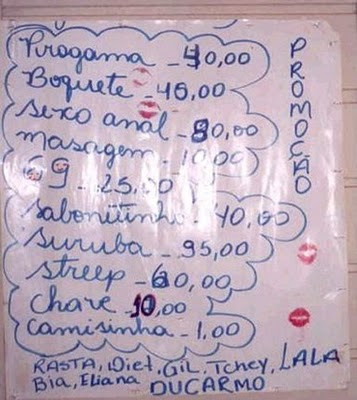 Pirogama - 40,00
Boquete - 40,00
Sexo anal - 80,00
Masagem - 10,00
69 - 25,00
Sabonitinho - 40,00
Suruba - 95,00
Streep - 60,00
Chave 10,00
Camisinha - 1,00
PROMOÇÃO
RASTA, Diet, GiL, Tchey, LALA
Bia, Eliana DUCARMO